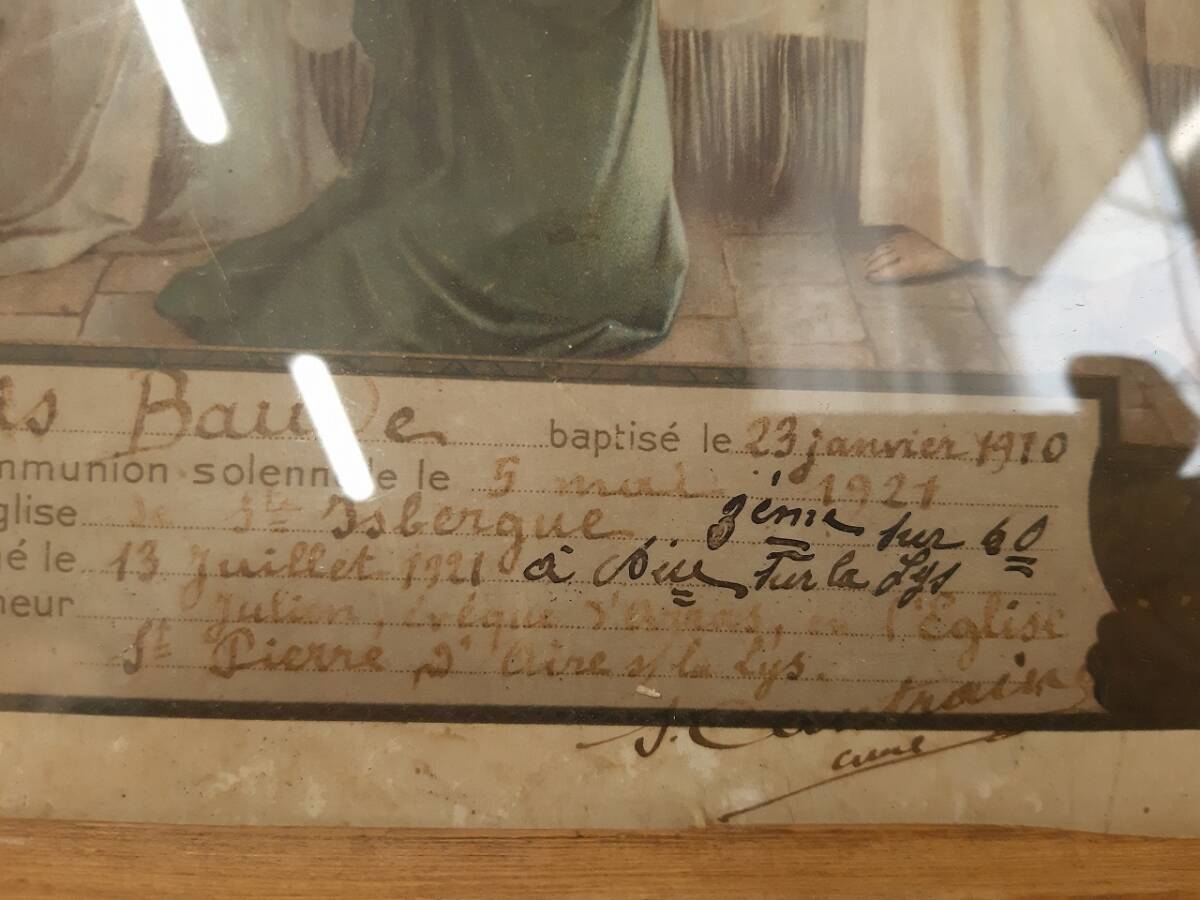 as Baude baptisé le 23 janvier 1910
mmunion solennelle le 5 mai 1921
glise de Ste Isbergue 3ème sur 60
é le 13 Juillet 1921 à Aire sur la Lys
neur Julien, évêque d'Arras, en l'Eglise
St Pierre d'Aire s/ la Lys.
J.
curé